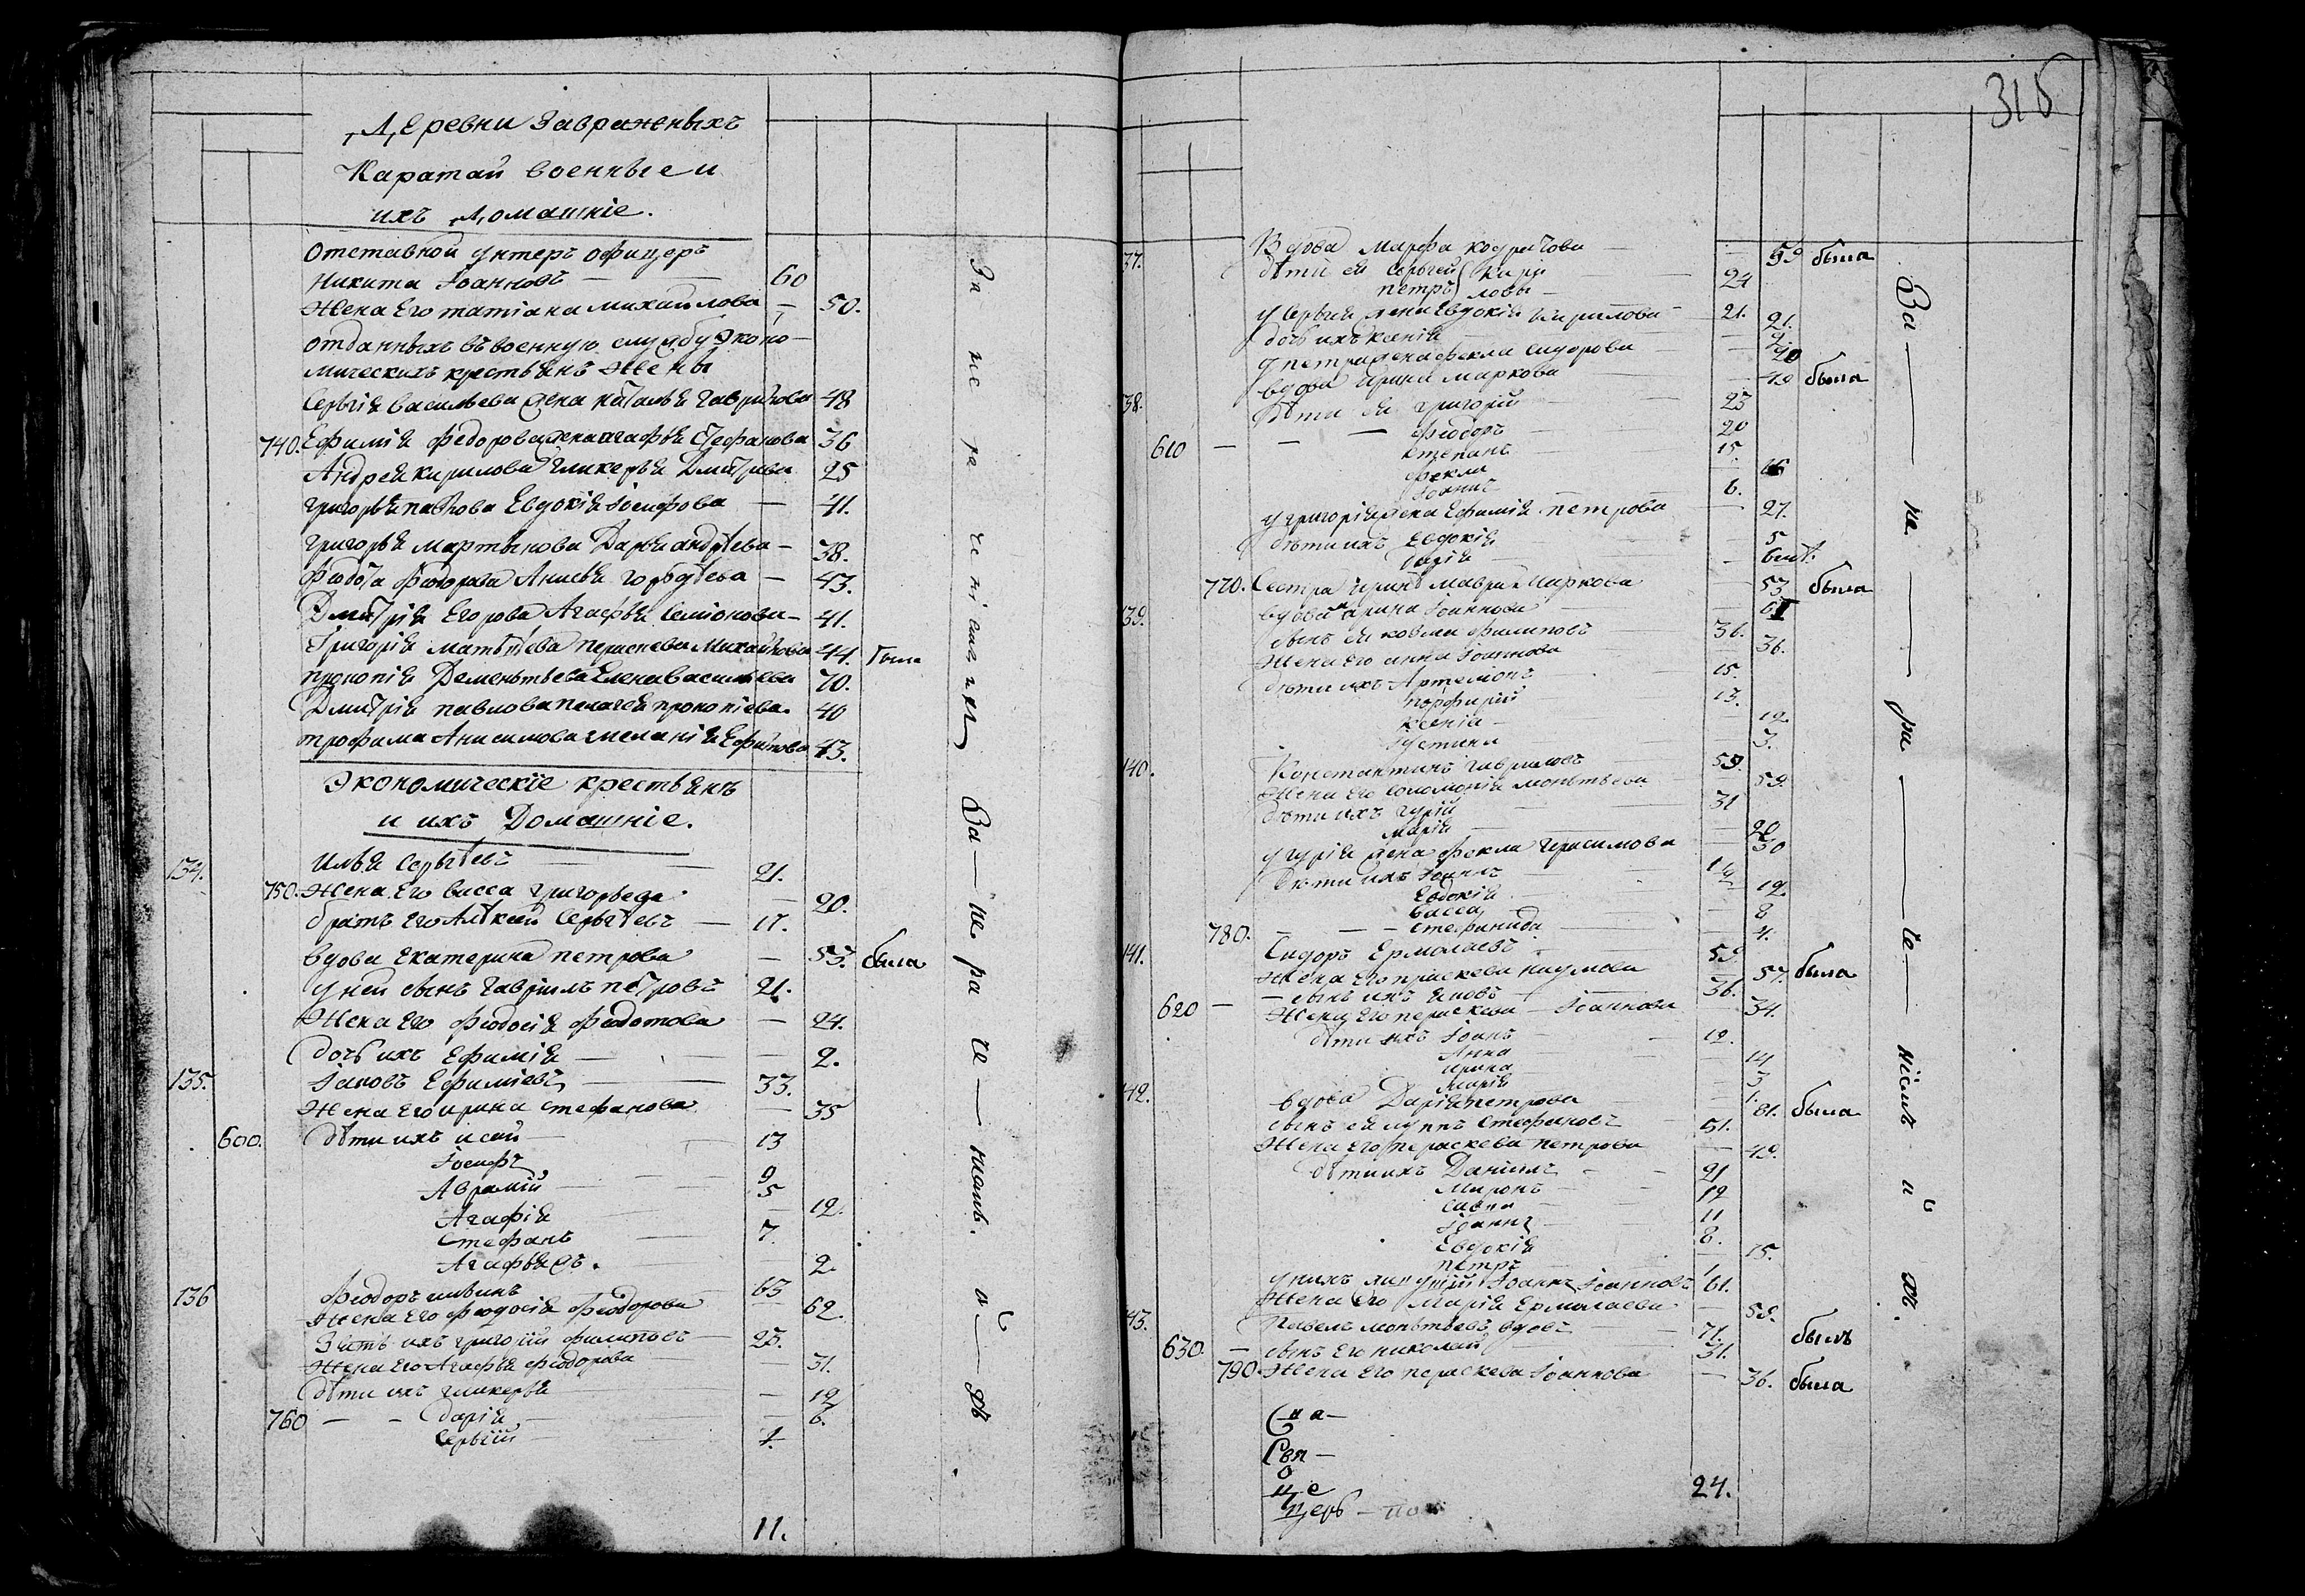 315
Деревни Завраженыхъ
Каратай военные и
ихъ Домашніе.
Отставной унтеръ офицеръ
Никита Іоанновъ — 60
Жена Его татіана михайлова — 50.
отданныхъ въ военную службу эконо-
мическихъ крестьянъ Жены
Сергія васильева жена наталья гаврилова 48
740. Ефимія федорова жена агафья стефанова 36
Андрея кирилова гликерья Дмитрива 25
григорья павлова Евдокія Іосифова — 41.
григорья мартынова Дарья андрѣева — 38.
Федота Федорова Анисья горбдѣева — 43.
Дмитрія Егорова Агафья семіонова — 41.
Григорія матвѣева параскева Михайлова 44. была
прокопія Дементьева Елена васильева 70.
Дмитрія павлова пелагея прокопіева 40
трофима Анисимова мелания Ефимова 43.
Экономическіе крестьянъ
и ихъ Домашніе.
134. Илья Сергѣевъ — 21.
750. Жена Его васса григорьева — 20.
братъ Его Алѣксей Сергѣевъ — 17.
вдова Екатерина петрова — 53. была
у ней сынъ Гавріилъ петровъ 21.
Жена Его Феодосія Федотова — 24.
дочь ихъ Ефимія — 2.
135. Іаковъ Ефиміевъ — 33.
Жена Его ирина стефанова — 35
600. дѣти ихъ исай — 13
Іосифъ 9
Аврамій — 5
Агафія — 12.
Стефанъ — 7.
Агафья 2.
136 Феодоръ 63
Жена Его Феодосія Феодорова 62.
Зять ихъ григорій филиповъ — 25.
Жена Его Агафья Феодорова 31.
дѣти ихъ гликерья — 12
760 — — дарія — 6.
Сергій 1.
11.
За не ра че ніемъ
За — не ра че — ніемъ.
37. Вдова марфа — 59 была
дѣти ея Сергей Кири 24
петръ ловы — 21.
у Сергія жена Евдокія кирилова — 21.
дочь ихъ ксенія 2.
у петра жена фекла сидорова 20
38. вдова ирина маркова — 40 была
дѣти ея григорій 23
610 — — — феодоръ — 20
степанъ 15.
фекла 16
Іоаннъ 6.
у григорія жена Ефимія петрова — 27.
дѣти ихъ Евдокія 5
дарія — 6
770. Сестра ирины мавра маркова — 53 была
139. вдова ирина Іоаннова 61
сынъ ея козма филиповъ 36.
Жена Его анна Іоаннова 36.
дѣти ихъ Артемонъ 15.
порфирій 13.
Ксенія — 12.
Іустина 3.
140. Константинъ гавриловъ 59.
Жена Его соломонія 59.
дѣти ихъ гурій 31
марія — 20
у гурія жена фекла герасимова — 30
дѣти ихъ Іоаннъ 14
Евдокія 12.
васса 8
780. — — стефанида 4.
141. Сидоръ Ермолаевъ 59
Жена Его праскева наумова — 57. была
— сынъ ихъ яковъ — 36.
620 — Жена Его параскева — Іоаннова — 34.
дѣти ихъ Іоаннъ — 12.
Анна 14
ирина — 3
марія 1.
142. вдова Дарія петрова — 81. была
сынъ ея Стефановъ 51.
Жена Его параскева петрова — 49.
дѣти ихъ Даніилъ — 21
Миронъ 19
савва 11
Іоаннъ — 8.
Евдокія — 15.
петръ 1.
у нихъ Іоаннъ Іоанновъ 61.
Жена Его Марія Ермолаева — 59.
43. Павелъ вдовъ 71. былъ
630. — сынъ Его николай 31.
790. Жена Его параскева Іоаннова — 36. была
24.
За — не — ра — че — ніемъ